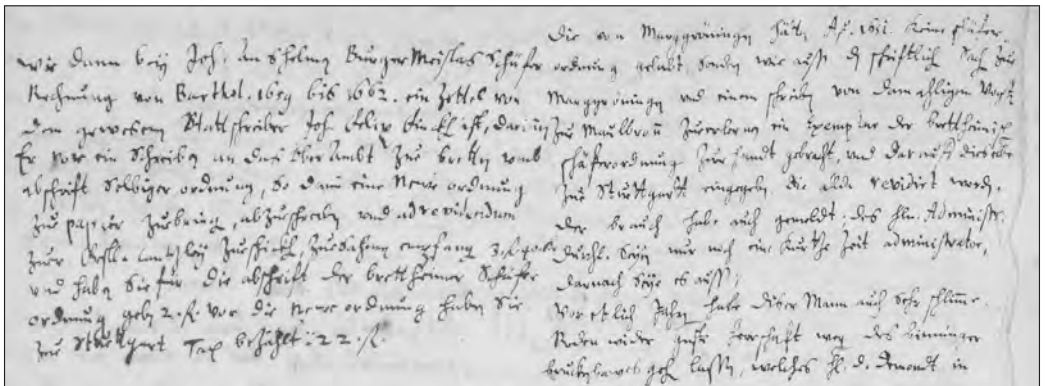 wie dann bey Joh: Burger Meisters Schäfer
Rechnung von Barthol. 1659 bis 1662. ein Zettel von
dem gewesenen Stattschreiber Joh. Felix ist, darin
Er vor ein Schreiben an das Ober Ambt zu Bretten umb
abschrift Selbiger ordnung, So dann eine Newe ordnung
zu papyer zubring, abzuschreiben und ad revidendum
zur Cantzley zuschickh, zusamen empfang
und haben Sie für die abschrift der brettheimer Schäfer
ordnung geben 2. fl. vor die newe ordnung haben Sie
zu Stuttgart Tax bezahlt. 22. fl.
die von Marggröningen 1651. keine schäfer
ordnung gehabt, sonder wie auß
Marggröningen und einem schreiben von damahligem Vogt
zu Maulbronn ein Exemplar der brettheimisch
schäfferordnung zur handt gebracht, und darauff dieselbe
zu Stuttgartt eingegeben, die alda revidirt worden.
der brauch habe auch gemeldt. des hln. Administr.
durchl. Seyen nur noch ein kurtze Zeit administrator,
darnach Seye es auß,
vor etlich Jahren habe diser Mann auch Sehr schlimme
Reden wider herrschaft weg des
lassen, welches hl. d. in